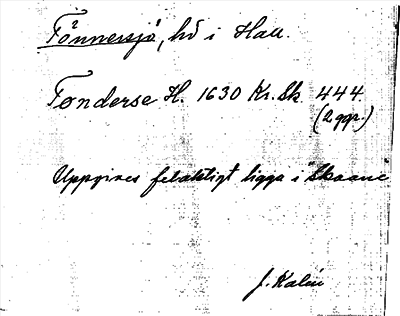 Tönnersjö, hd i Hall.
Tønderse H. 1630 Kr. Sk. 444.
(2 ggr.)
Uppgives felaktigt ligga i Skaane
J. Kalén